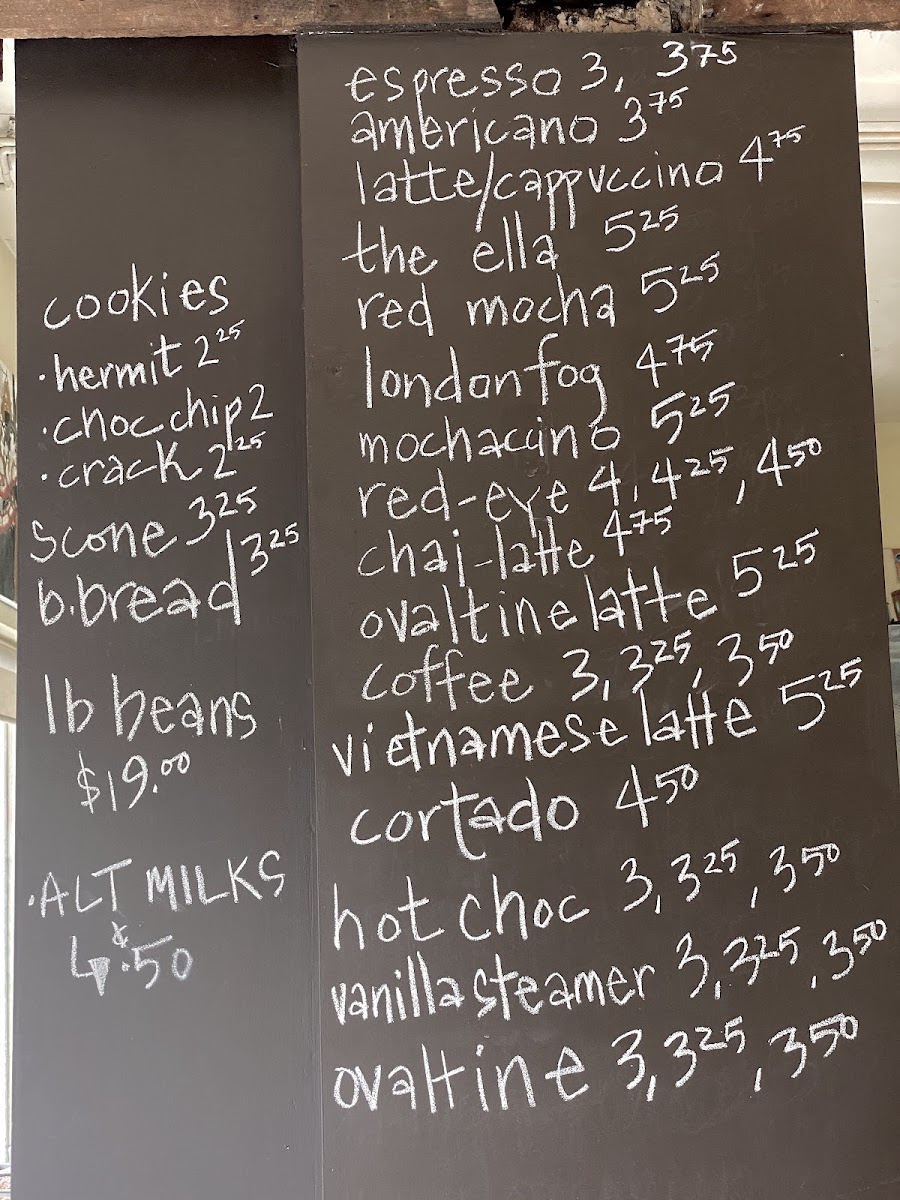 cookies
·hermit 2 25
·choc chip 2
·crack 2 25
scone 3 25
b.bread 3 25
lb beans
$19.00
·ALT MILKS
.50
espresso 3, 3 75
americano 3 75
latte/cappuccino 4 75
the ella 5 25
red mocha 5 25
london fog 4 75
mochaccino 5 25
red-eye 4, 4 25, 4 50
chai-latte 4 75
ovaltine latte 5 25
coffee 3, 3 25, 3 50
vietnamese latte 5 25
cortado 4 50
hot choc 3, 3 25, 3 50
vanilla steamer 3, 3 25, 3 50
ovaltine 3, 3 25, 3 50